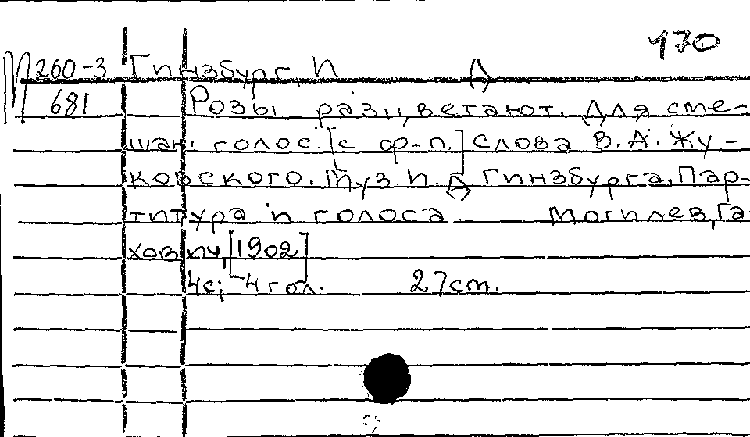 470
П 260-3 Гинзбург, П Д
681 Розы расцветают. Для сме-
шан. голос. [с ф-п.] Слова В. А. Жу-
ковского. Муз П. Д Гинзбурга. Пар-
титура и голоса Могилев, Га
хович, [1902]
4с; 4 гол. 27см.